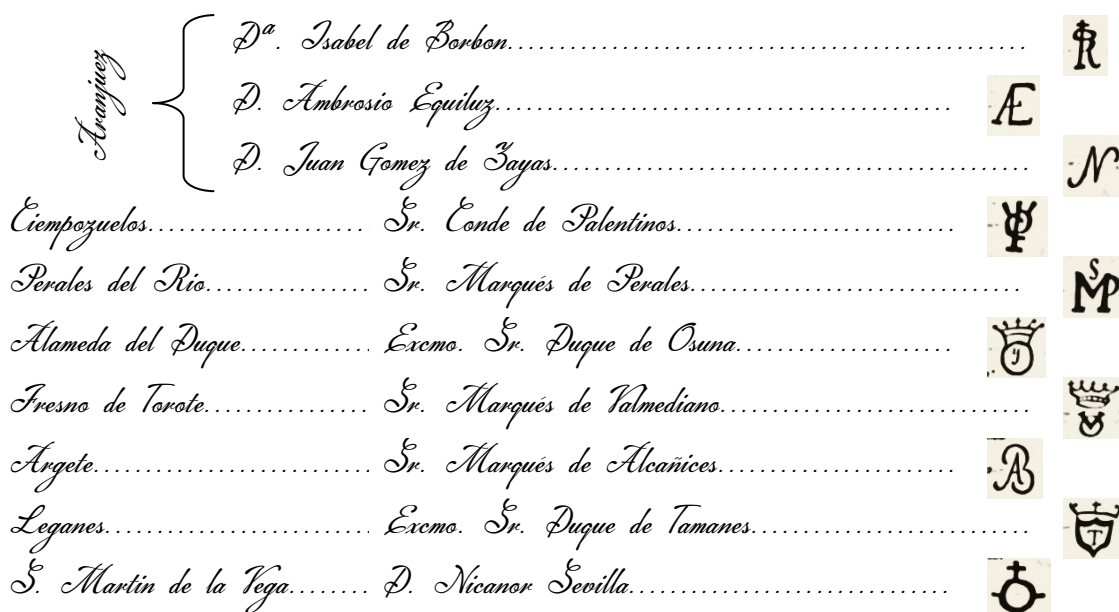 Aranjuez
Dª. Isabel de Borbon
D. Ambrosio Equiluz
D. Juan Gomez de Zayas
Ciempozuelos Sr. Conde de Palentinos
Perales del Rio Sr. Marqués de Perales
Alameda del Duque Excmo. Sr. Duque de Osuna
Fresno de Torote Sr. Marqués de Valmediano
Argete Sr. Marqués de Alcañices
Leganes Excmo. Sr. Duque de Tamanes
S. Martin de la Vega D. Nicanor Sevilla